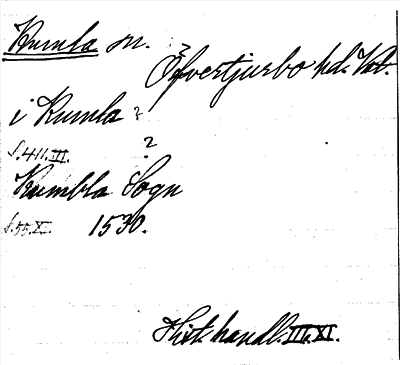 Kumla sn.
Öfvertjurbo hd. Vtl.
i Kumla ?
s. 411. III. ?
Kumbla Sogn
s. 55. XI. 1530.
Hist. handl. III, XI.